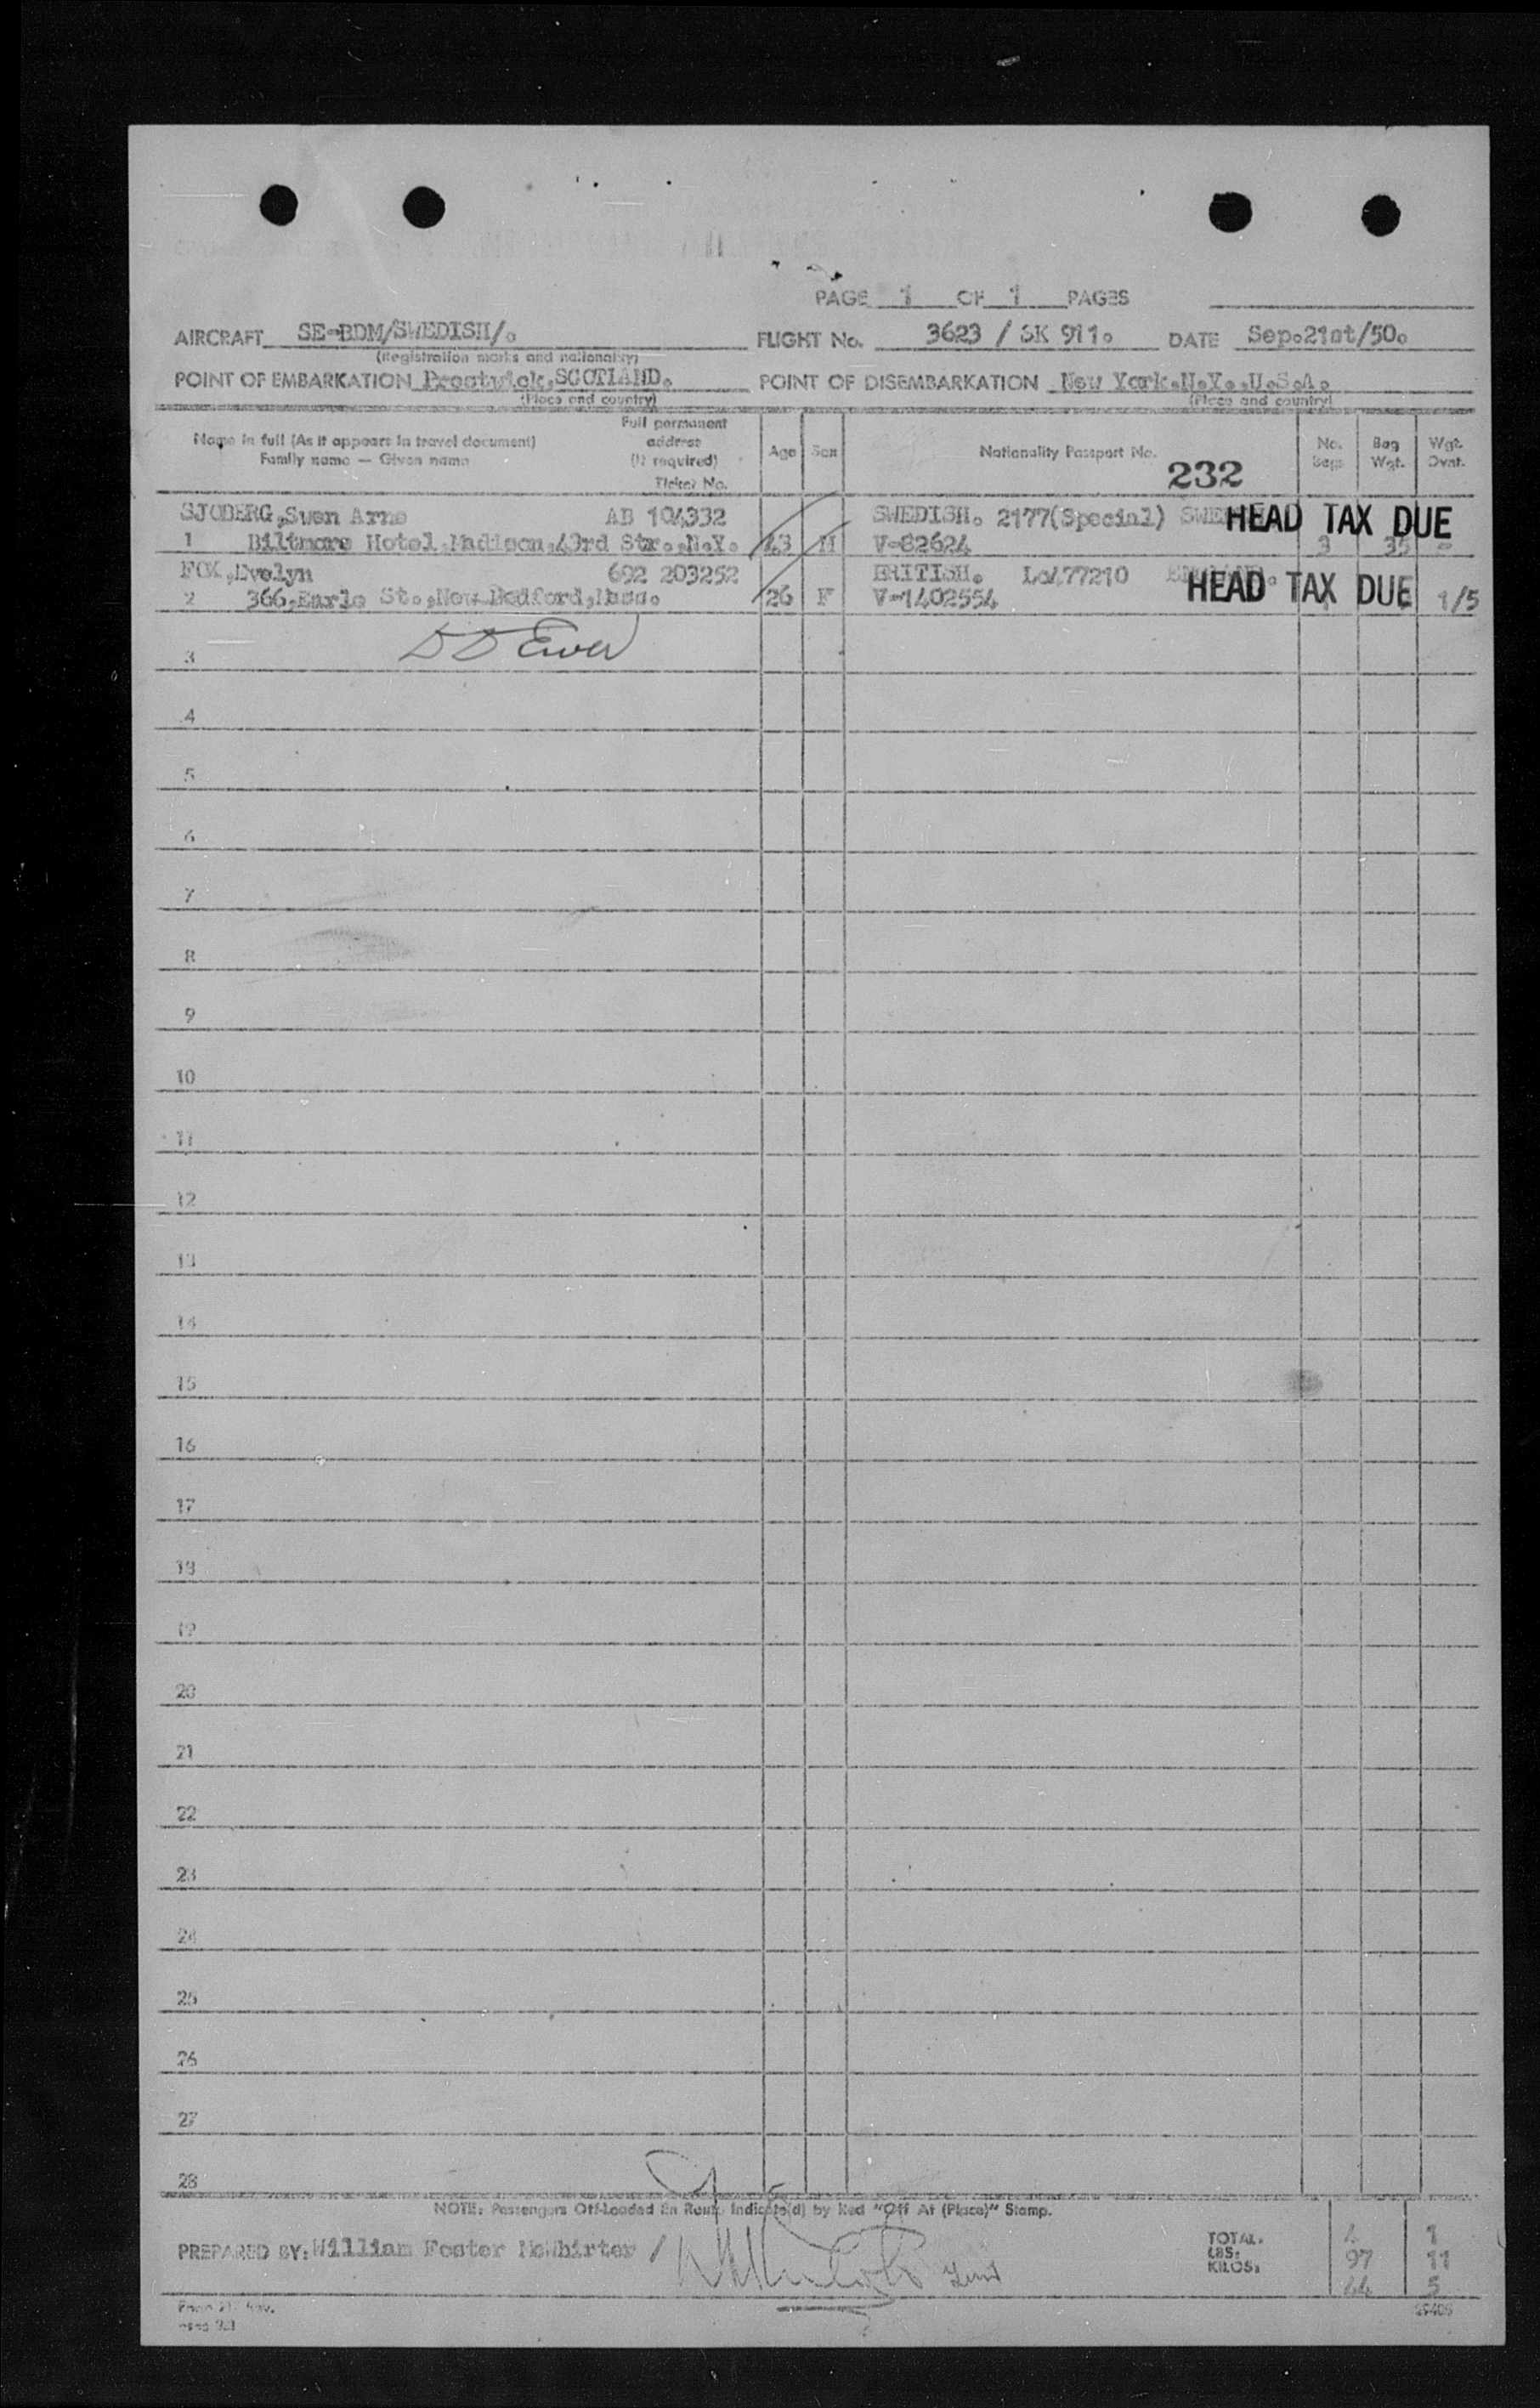 PAGE 1 OF 1 PAGES
AIRCRAFT SE-BDM/SWEDISH/. FLIGHT No. 3623 / SK 911. DATE Sep.21st/50.
(Registration marks and nationality)
POINT OF EMBARKATION Prestwick,SCOTLAND. POINT OF DISEMBARKATION New York.N.Y.,U.S.A.
(Place and country) (Place and country)
Name in full (As it appears in travel document)
Family name — Given name
Full permanent
address
(If required)
Ticket No.
Age Sex Nationality Passport No. No. Bags Bag Wgt. Wgt. Ovnt.
232
SJOBERG,Sven Arne AB 104332 SWEDISH. 2177(Special) HEAD TAX DUE
1 Biltmore Hotel.Madison.43rd Str..N.Y. 43 M V-82624 3 35 -
FOX,Evelyn 692 203252 BRITISH. L0477210 ENGLAND. HEAD TAX DUE
2 366,Earle St.,New Bedford,Mass. 26 F V-1402554 1/5
3
4
5
6
7
8
9
10
11
12
13
14
15
16
17
18
19
20
21
22
23
24
25
26
27
28
NOTE: Passengers Off-Loaded En Route Indicate(d) by Red "Off At (Place)" Stamp.
PREPARED BY: William Foster McWhirter /
TOTAL. 4 1
LBS: 97 11
KILOS: 44 5